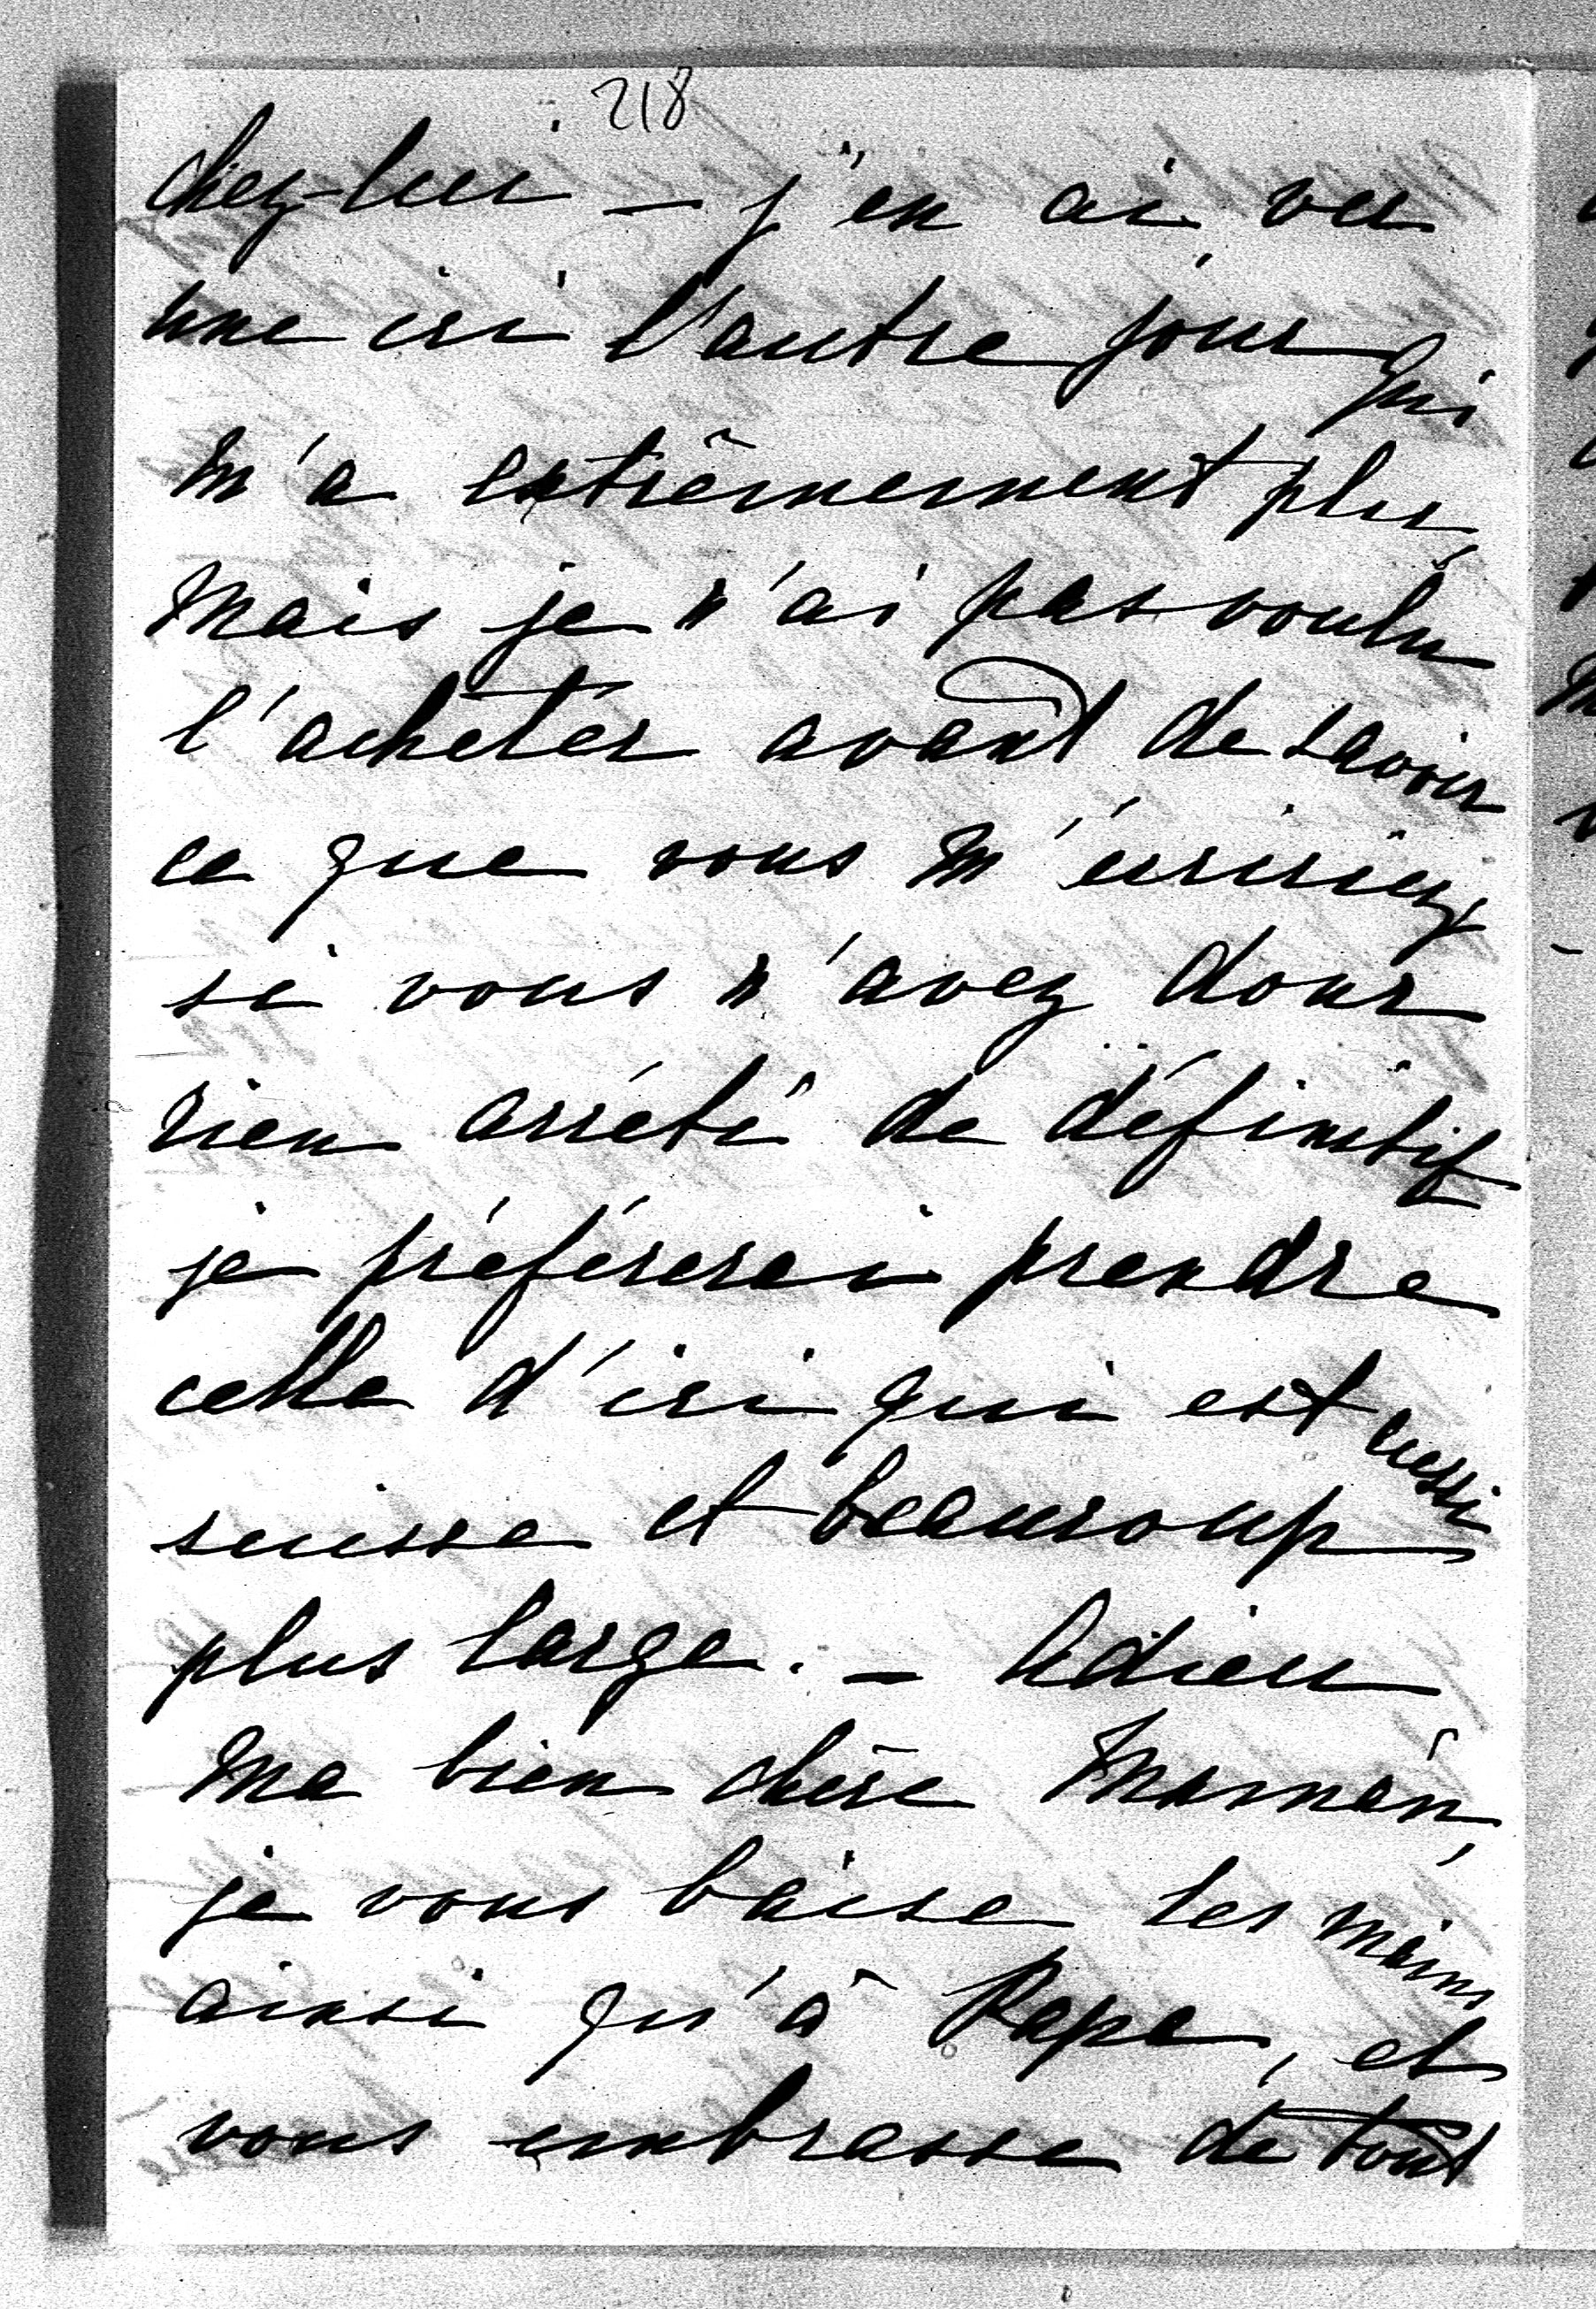 218
chez-lui – j'en ai vu
une ici l'autre jour qui
m'a extrêmement plu,
mais je n'ai pas voulu
l'acheter avant de savoir
ce que vous m'écririez,
si vous n'avez donc
rien arrêté de définitif
je préférerai prendre
celle d'ici qui est aussi
suisse et beaucoup
plus large. – Adieu
ma bien chère Maman,
je vous baise les mains
ainsi qu'à Papa, et
vous embrasse de tout